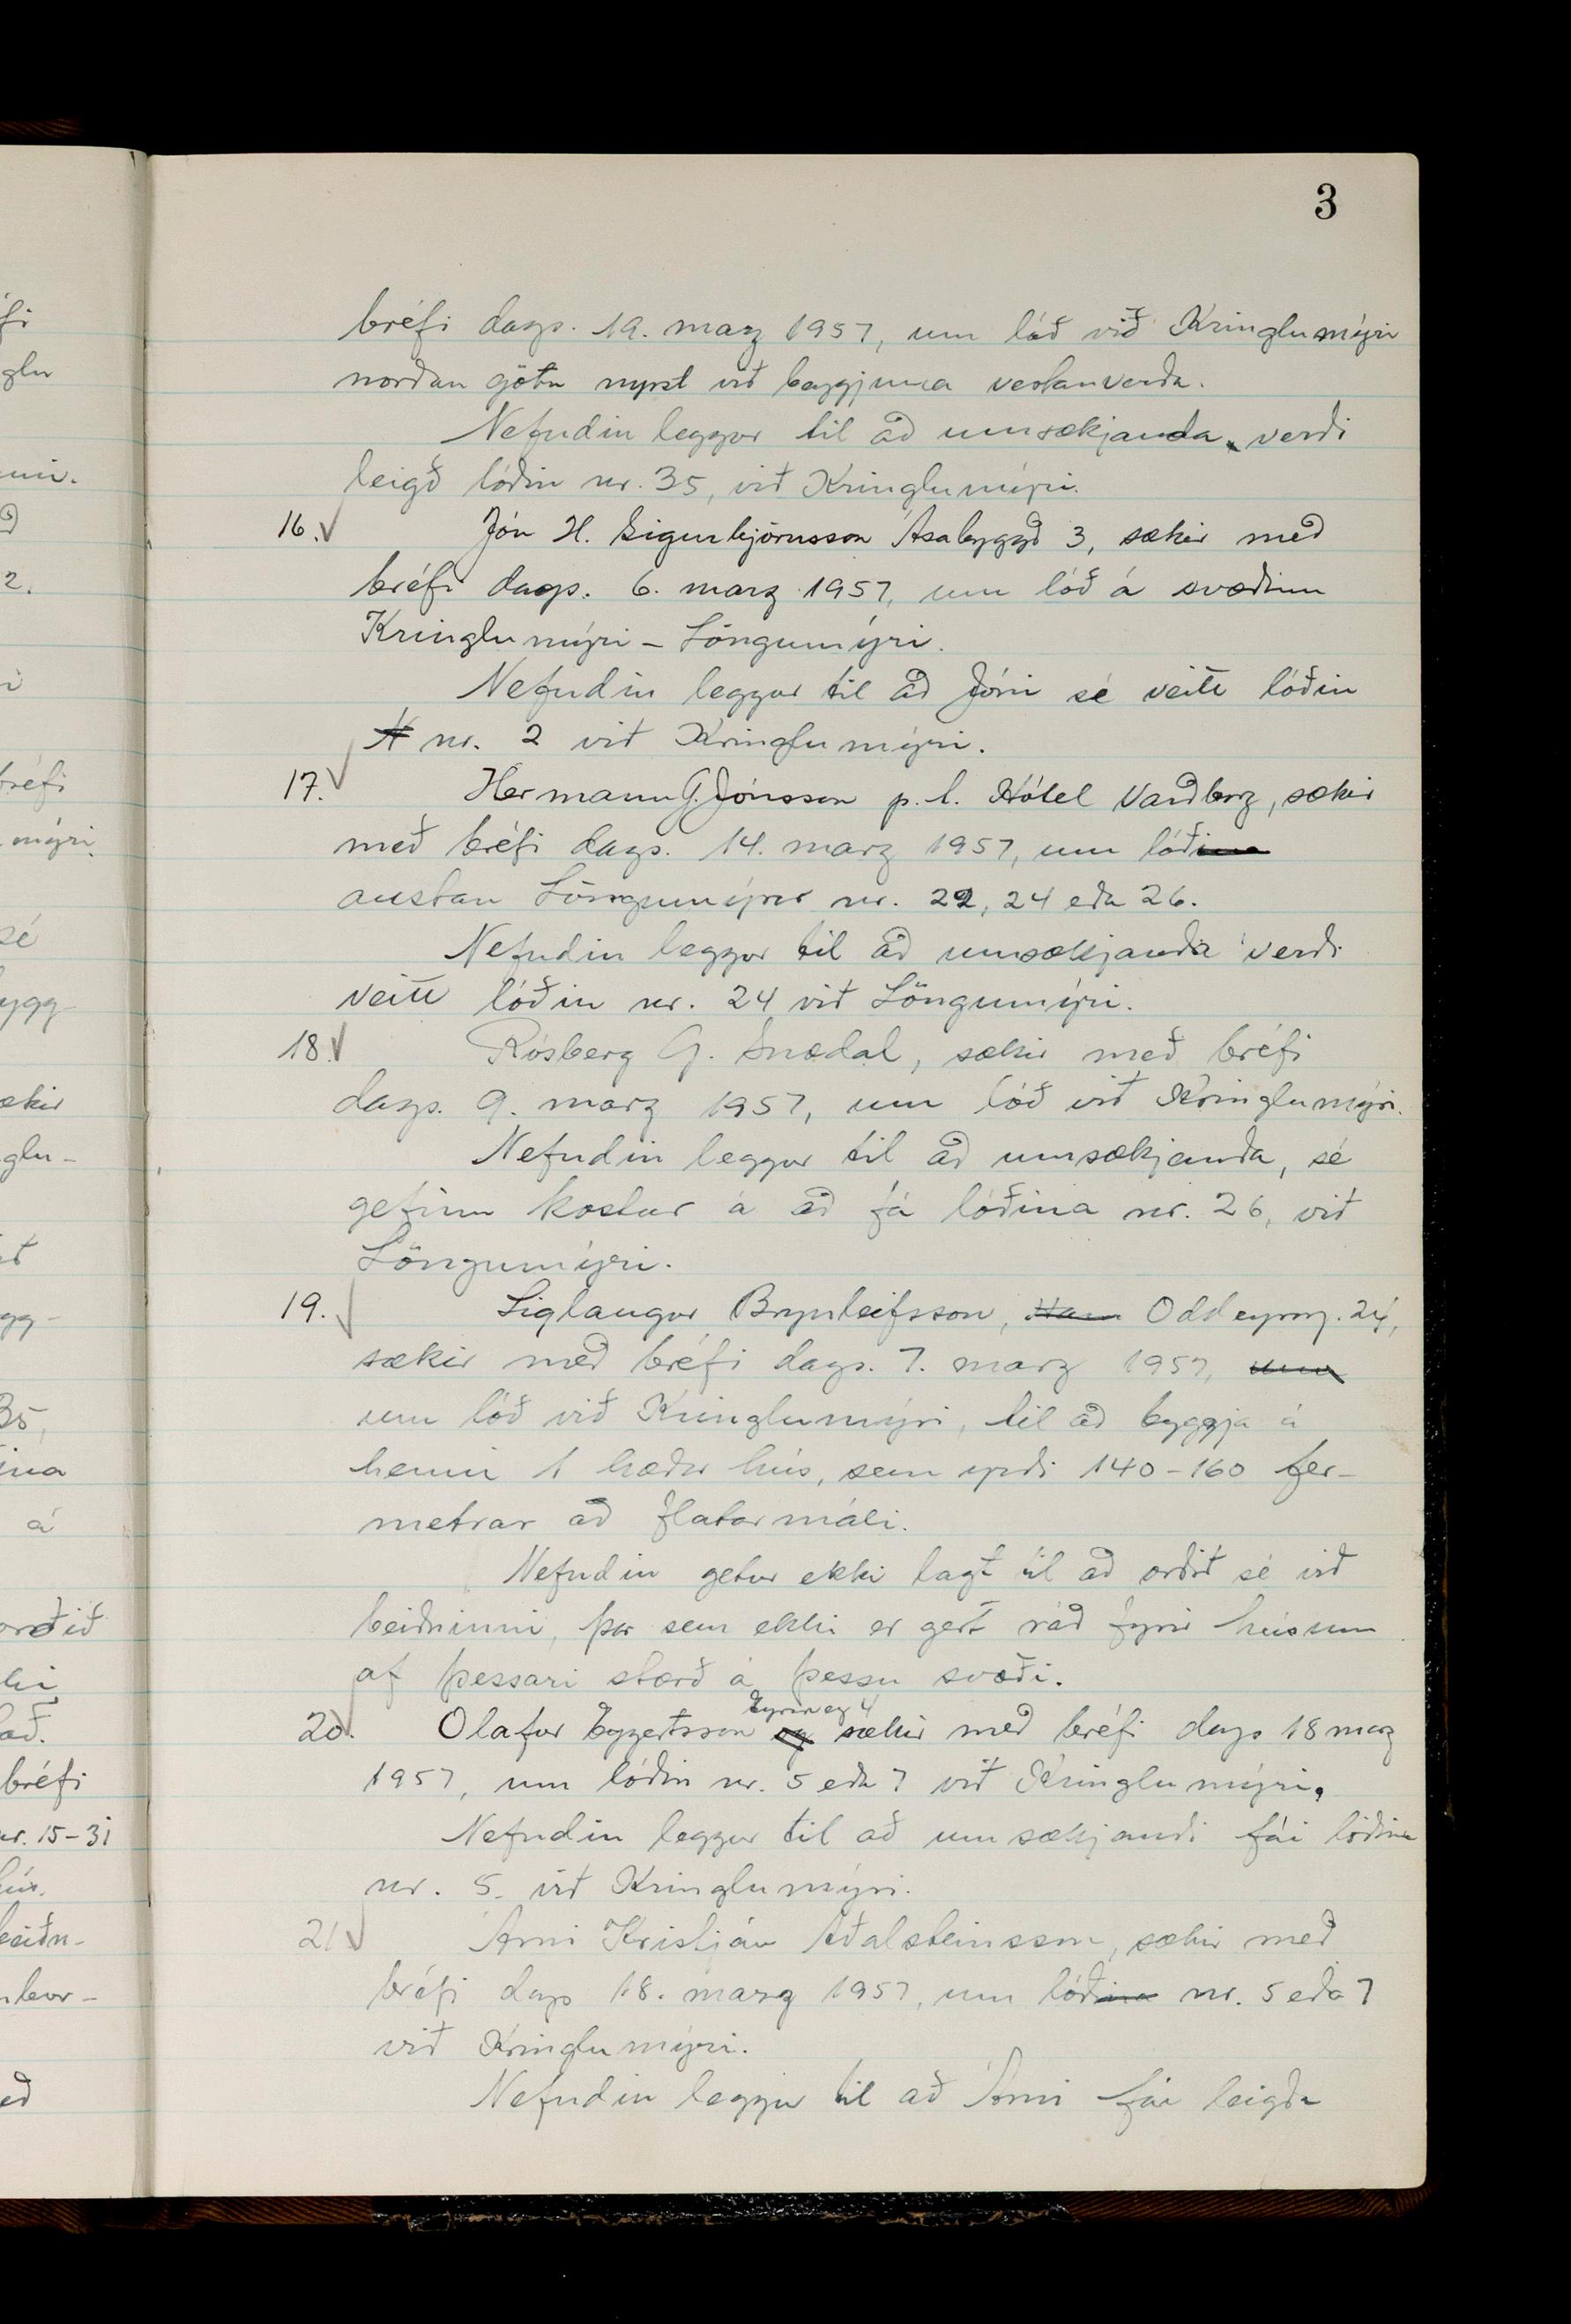 3
bréfi dags. 19. marz 1957, um lóð við Kringlumýri
norðan götu nyrst við beygjuna vestanverða.
Nefndin leggur til að umsækjanda verði
leigð lóðin nr. 35, við Kringlumýri.
16. Jón H. Sigurbjörnsson Ásabyggð 3, sækir með
bréfi dags. 6. marz 1957, um lóð á svæðinu
Kringlumýri - Löngumýri.
Nefndin leggur til að Jóni sé veitt lóðin
N nr. 2 við Kringlumýri.
17. Hermann G. Jónsson p.t. Hótel Varðborg, sækir
með bréfi dags. 14. marz 1957, um lóðina
austan Löngumýrar nr. 22, 24 eða 26.
Nefndin leggur til að umsækjanda verði
veitt lóðin nr. 24 við Löngumýri.
18. Rósberg G. Snædal, sækir með bréfi
dags. 9. marz 1957, um lóð við Kringlumýri.
Nefndin leggur til að umsækjanda, sé
gefinn kostur á að fá lóðina nr. 26, við
Löngumýri.
19. Siglaugur Brynleifsson, Ham Oddeyrarg. 24,
sækir með bréfi dags. 7. marz 1957, um
um lóð við Kringlumýri, til að byggja á
henni 1 hæðar hús, sem yrði 140-160 fer-
metrar að flatarmáli.
Nefndin getur ekki lagt til að orðið sé við
beiðninni, þar sem ekki er gert ráð fyrir húsum
af þessari stærð á þessu svæði.
Eyrarveg 4
20. Olafur Eggertsson og sækir með bréfi dags 18 marz
1957, um lóðin nr. 5 eða 7 við Kringlumýri.
Nefndin leggur til að umsækjandi fái lóðina
nr. 5. við Kringlumýri.
21 Árni Kristján Aðalsteinsson, sækir með
bréfi dags 18. marz 1957, um lóðina nr. 5 eða 7
við Kringlumýri.
Nefndin leggur til að Árni fái leigða
fi
glu
2.
bréfi
mýri.
sé
ygg-
ækir
glu-
35,
ina
á
orðið
bréfi
nr. 15-31
beiðn-